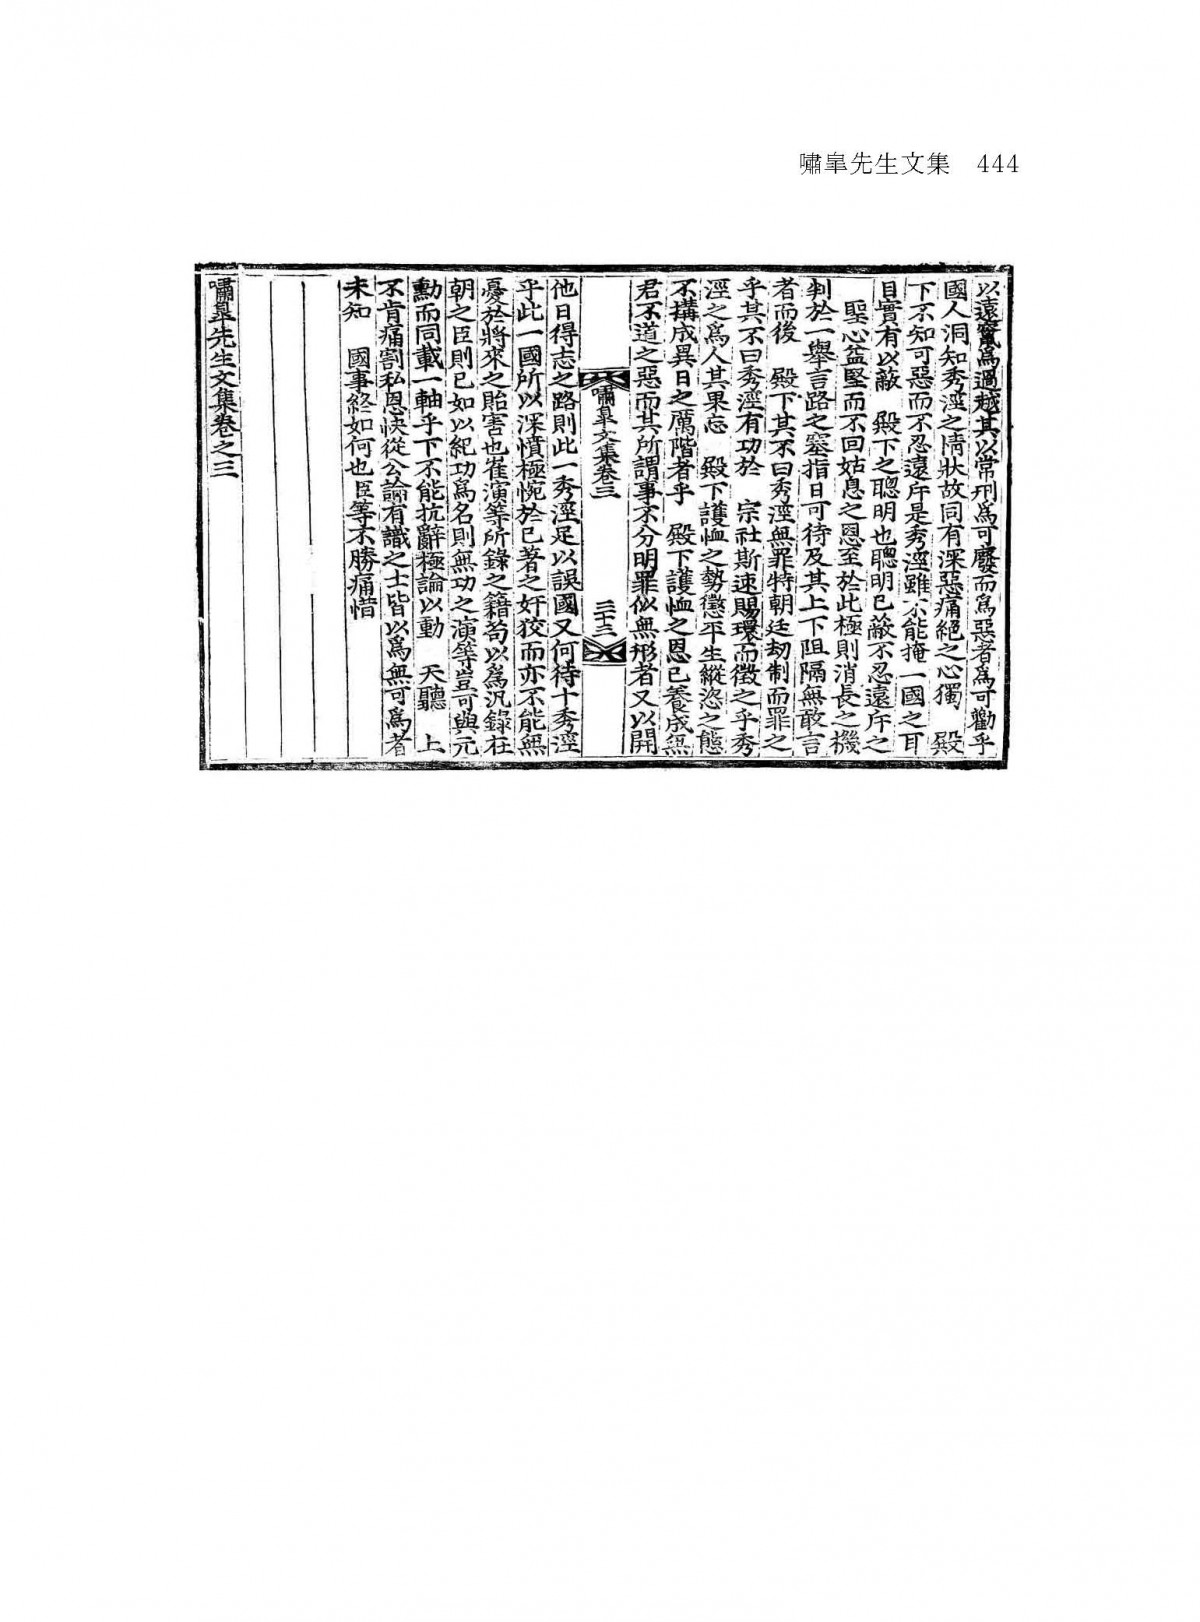 嘯皐先生文集 444
以遠竄爲過越其以常刑爲可廢而爲惡者爲可勸乎
國人洞知秀涇之情狀故同有深惡痛絕之心獨 殿
下不知可惡而不忍遠斥是秀涇雖不能掩一國之耳
目實有以蔽 殿下之聰明也聰明已蔽不忍遠斥之
聖心益堅而不回姑息之恩至於此極則消長之機
判於一擧言路之塞指日可待及其上下阻隔無敢言
者而後 殿下其不曰秀涇無罪特朝廷劫制而罪之
乎其不曰秀涇有功於 宗社斯速賜環而徵之乎秀
涇之爲人其果忘 殿下護恤之勢懲平生縱恣之態
不搆成異日之厲階者乎 殿下護恤之恩已養成無
君不道之惡而其所謂事不分明罪似無形者又以開
嘯皐文集卷三 三十三
他日得志之路則此一秀涇足以誤國又何待十秀涇
乎此一國所以深憤極惋於已著之奸狡而亦不能無
憂於將來之貽害也崔演等所錄之籍苟以爲汎錄在
朝之臣則已如以紀功爲名則無功之演等豈可與元
勳而同載一軸乎下不能抗辭極論以動 天聽 上
不肯痛割私恩快從公論有識之士皆以爲無可爲者
未知 國事終如何也臣等不勝痛惜
嘯皐先生文集卷之三